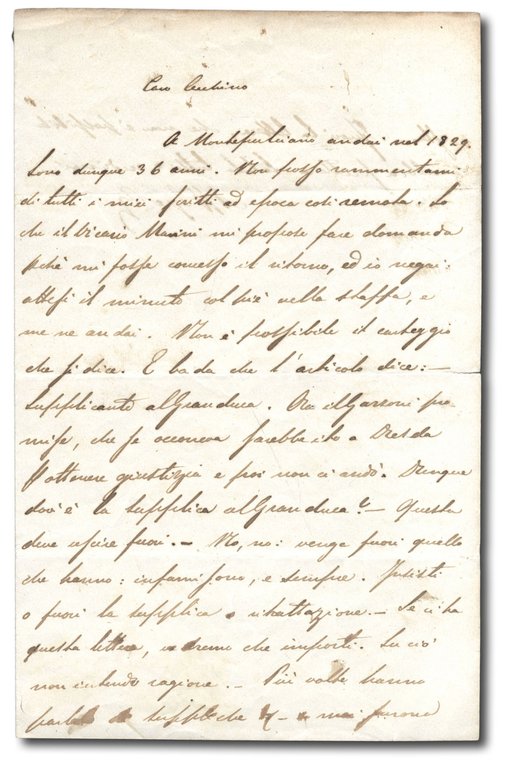 Caro Cecchino
A Montepulciano andai nel 1829.
Sono dunque 36 anni. Non posso rammentarmi
di tutti i miei scritti ad epoca così remota. So
che il Vicario Marini mi propose fare domanda
pchè mi fosse concesso il ritorno, ed io negai:
attesi il minuto col piè nella staffa, e
me ne andai. Non è possibile il carteggio
che si dice. E bada che l'articolo dice: —
supplicante al Granduca. Ora il Garzoni pro-
mise, che se occorreva sarebbe ito a Dresda
p ottenere giustizia e poi non ci andò. Dunque
dov'è la supplica al Granduca? — Questa
deve uscire fuori. — No, no: venga fuori quello
che hanno: infami sono, e sempre. Insisti
o fuori la supplica o ritrattazione. — Se ci ha
questa lettera, vedremo che importi. Su ciò
non intendo ragione. — Più volte hanno
di suppliche e mai furono